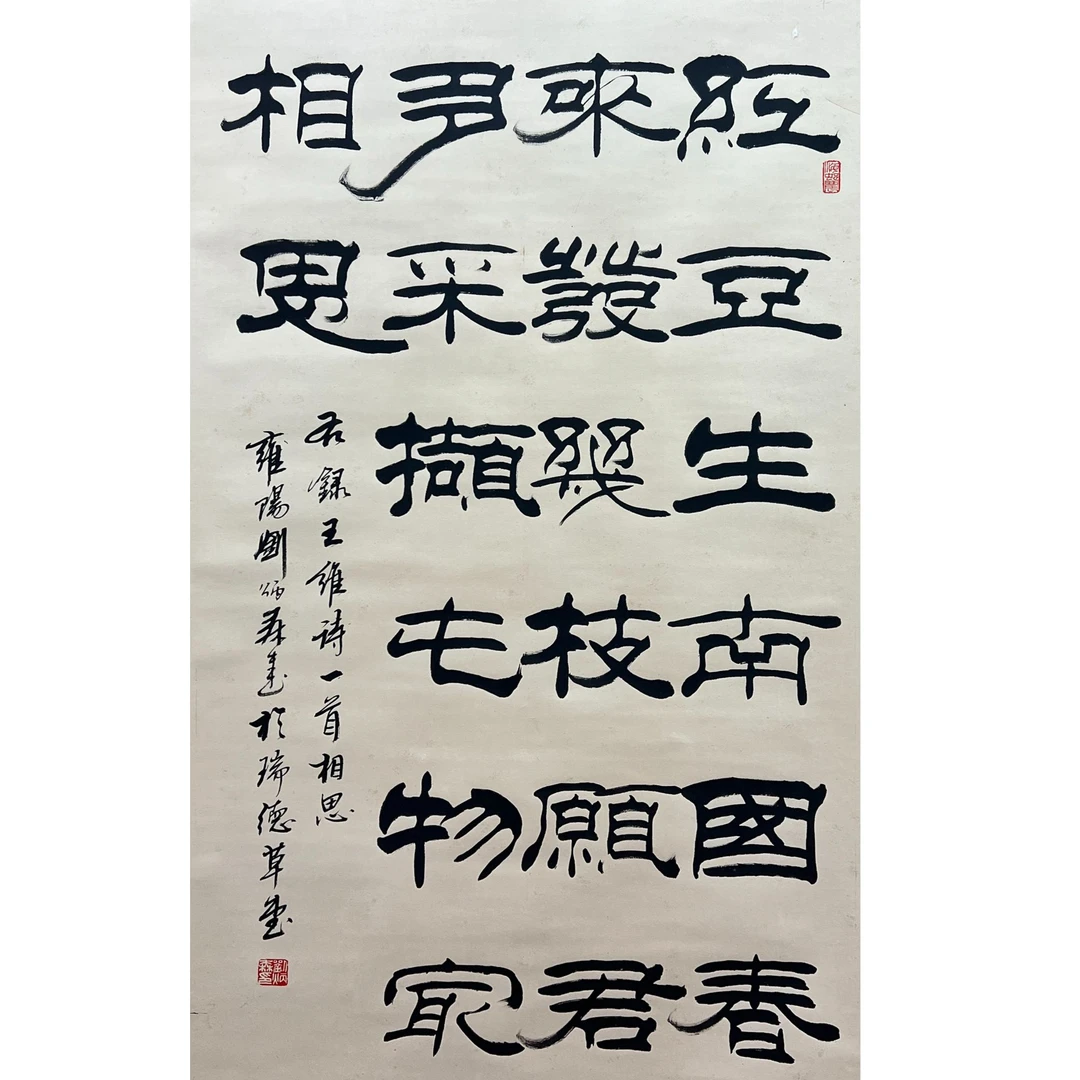 紅豆生南國春
來發幾枝願君
多采擷此物最
相思
右錄王維詩一首相思
雍陽劉炳森書於瑞德草堂
劉炳森印